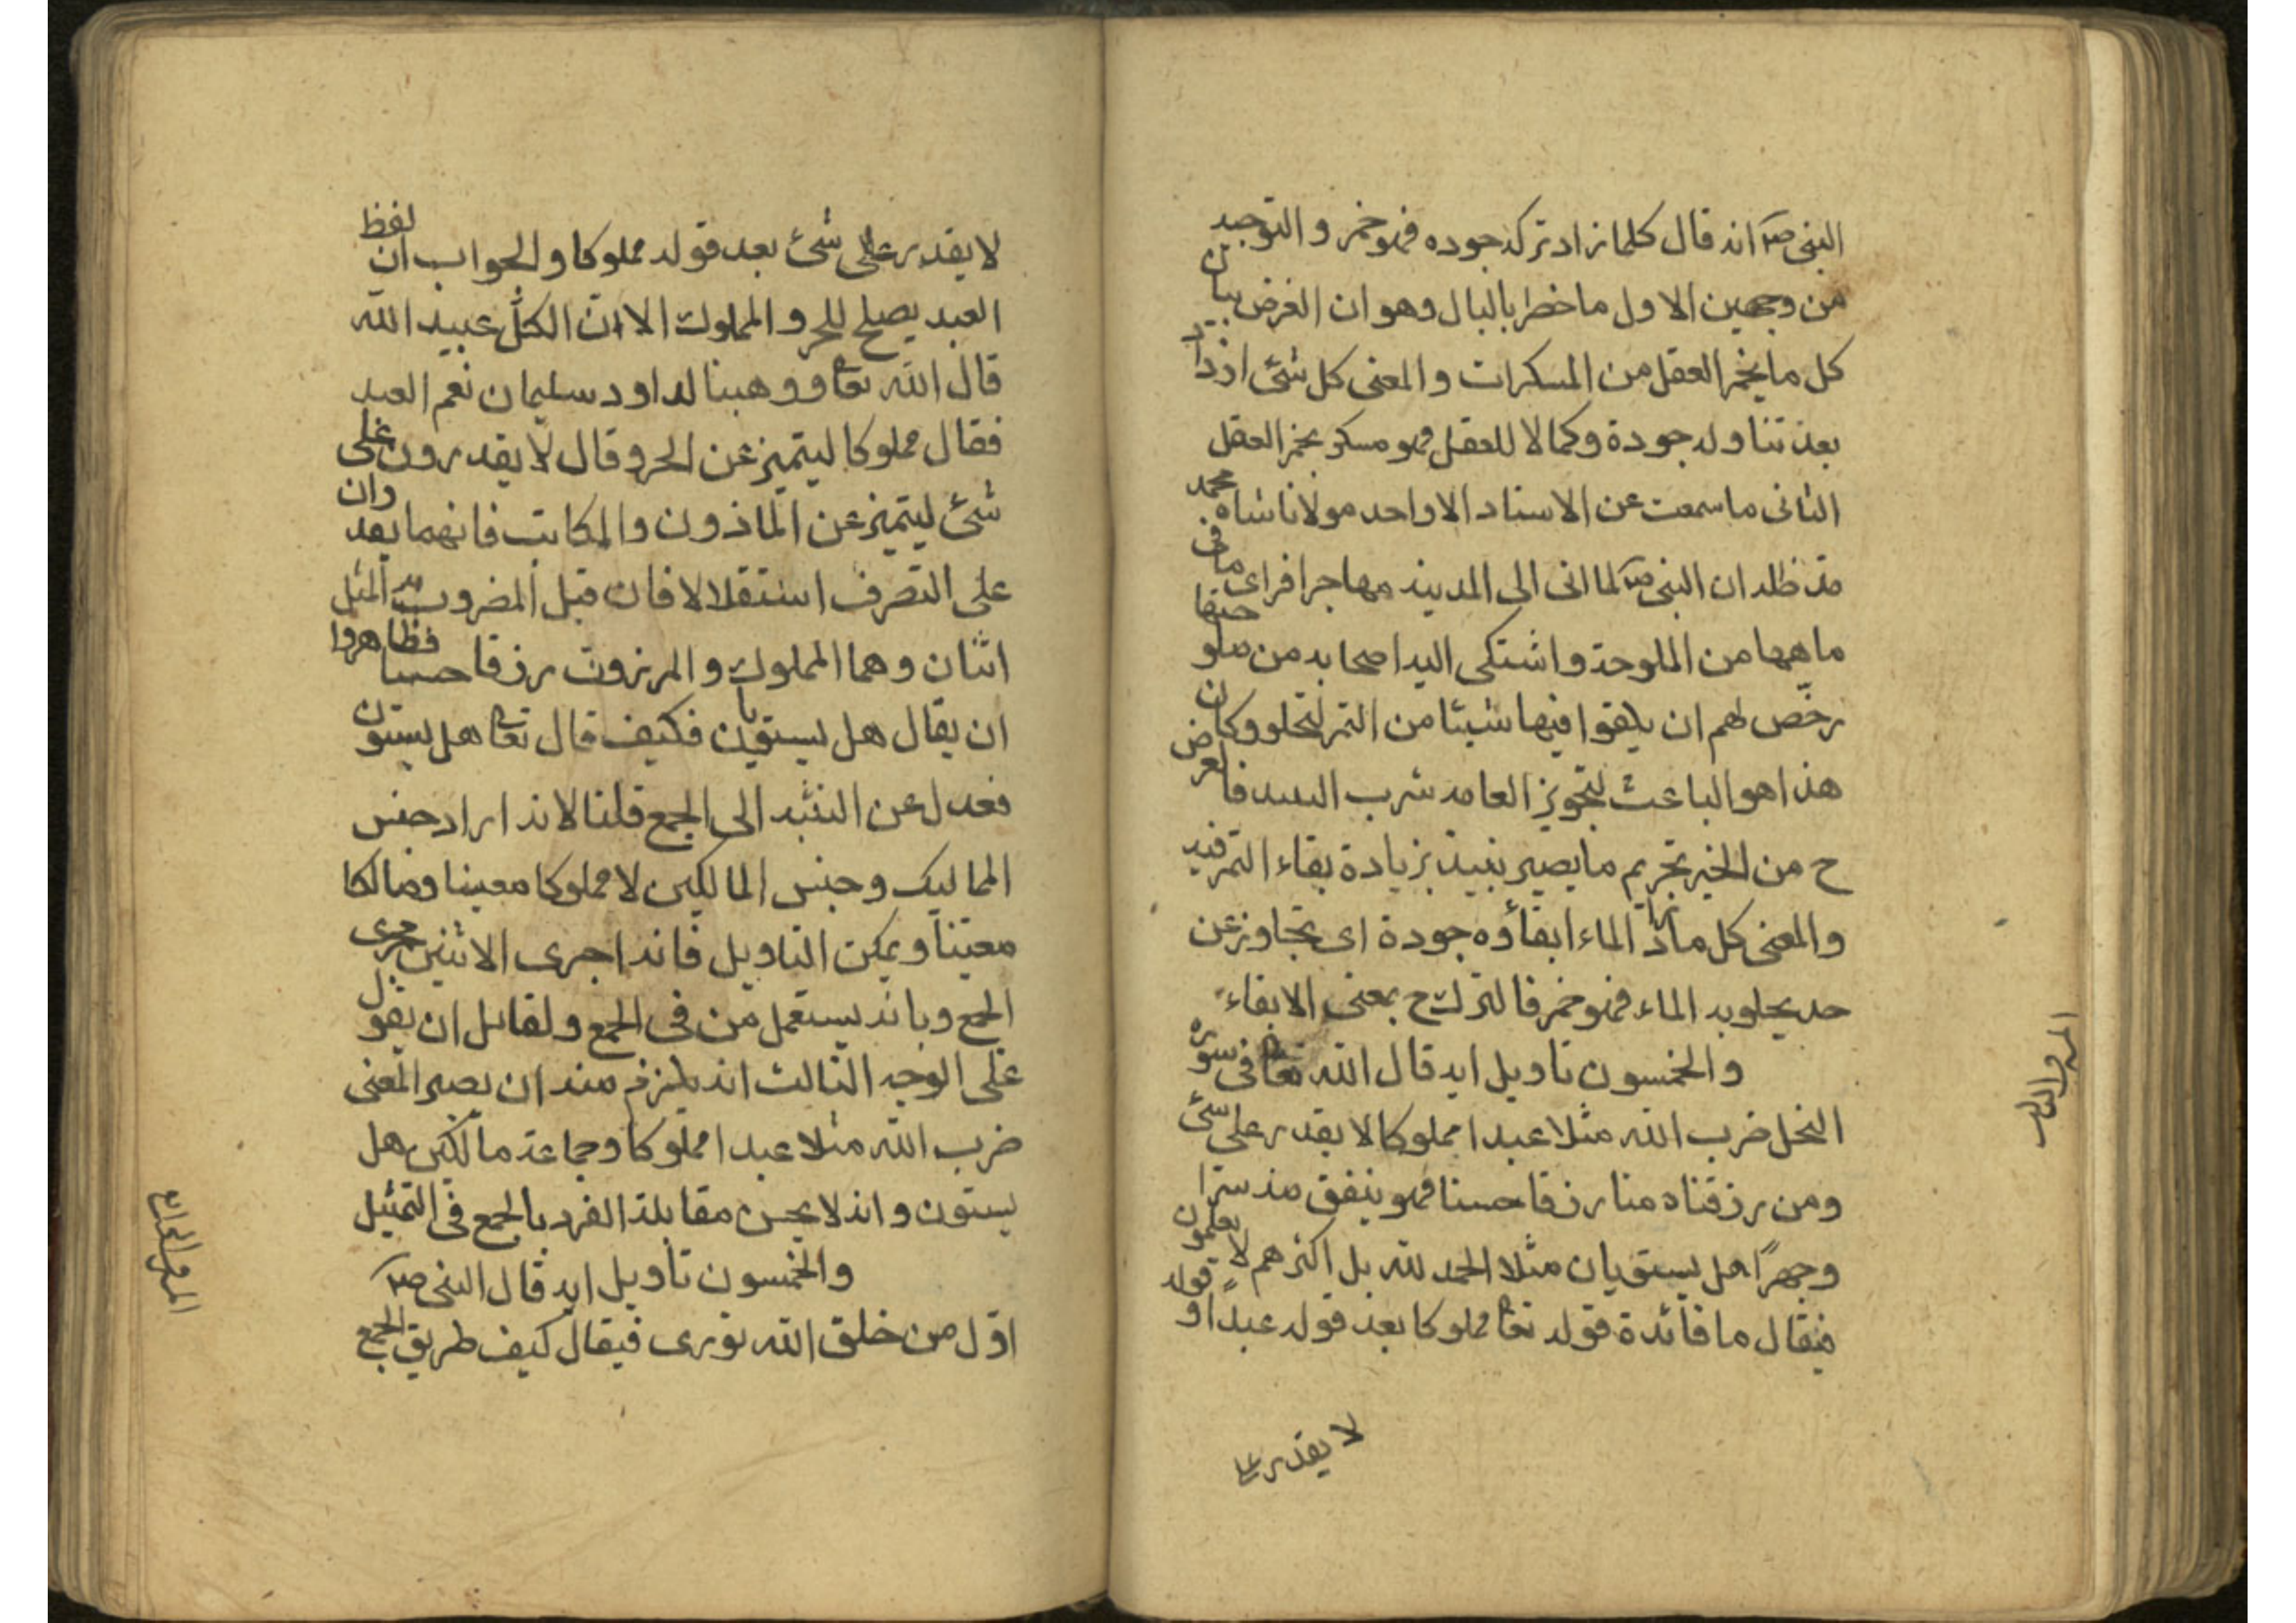 النبى صلم انه قال كلما زاد تركه جوده فهو خمر و التوجيه
من وجهين الاول ما خطر بالبال وهو ان الغرض بيان
كل ما يخمر العقل من المسكرات و المعنى كل شئ ازداد
بعد تناوله جودة وكمالا للعقل فهو مسكر يخمر العقل
الثانى ما سمعت عن الاستاد الاواحد مولانا شاه محمد
مد ظله ان النبى صلم لما اتى الى المدينه مهاجرا فراى ما فى
ماهها من الملوحة و اشتكى اليه اصحابه من
رخّص لهم ان يلقوا فيها شيئا من التمر لتحلو وكان
هذا هو الباعث لتجويز العامه شرب فالغرض
ح من الخبر تحريم ما يصير نبيذ بزيادة بقاء التمر فيه
والمعنى كل ما زاد الماء ابقاؤه جودة اى يتجاوز عن
حد يحلو به الماء فهو خمر فالترك ح بمعنى الابقاء
و الخمسون تاويل ايه قال الله تعا فى سوره
النحل ضرب الله مثلا عبدا مملوكا لا يقدر على شئ
ومن رزقناه منا رزقا حسنا فهو ينفق منه سرّا
وجهرًا هل يستويان مثلا الحمد لله بل اكثرهم لا يعلمون
فيقال ما فائدة قوله تعا مملوكا بعد قوله عبدًا و قوله
لا يقدر على
لا يقدر على شئ بعد قوله مملوكا و الجواب ان لفظ
العبد يصلح للحر و المملوك الا ان الكل عبيد الله
قال الله تعا ووهبنا لداود سليمان نعم العبد
فقال مملوكا ليتميز عن الحر وقال لا يقدرون على
شئ ليتميز عن الماذون و المكاتب فانهما يقدران
على التصرف استقلالا فان قيل المضروب به المثل
اثنان و هما المملوك و المرزوق رزقا حسنا فظاهروا
ان يقال هل يستويان فكيف قال تعا هل يستون
فعدل عن التثنيه الى الجمع قلنا لانه اراد جنس
المماليك و جنس المالكين لا مملوكا معينا و مالكا
معينا و يمكن التاويل فانه اجرى الاثنين مجرى
الجمع و بانه يستعمل من فى الجمع و لقائل ان يقول
على الوجه الثالث انه يلزم منه ان يصير المعنى
ضرب الله مثلا عبدا مملوكا و جماعة مالكين هل
يستون و انه لا يحسن مقابلة الفرد بالجمع فى التمثيل
و الخمسون تاويل ايه قال النبى صلم
اوّل من خلق الله نورى فيقال كيف طريق الجمع